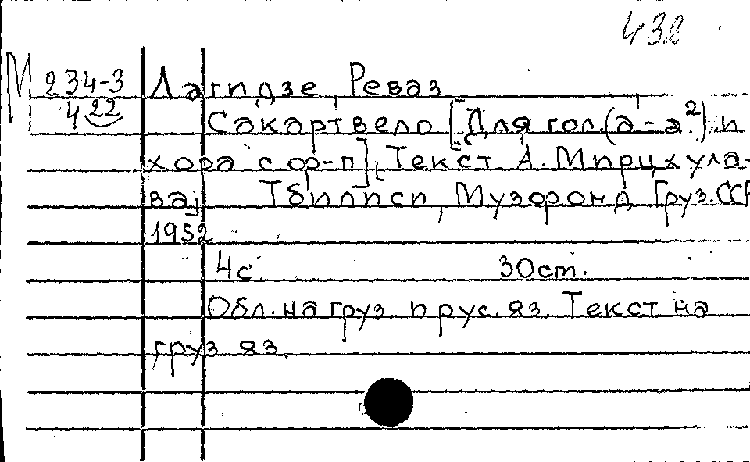 432
М 234-3
4 22
Лагидзе, Реваз
Сакартвело [Для гол. (a-a²) и
хора с ф-п], [Текст А. Мирцхула-
ва]   Тбилиси, Музфонд Груз. ССР
1952
4с.   30cm.
Обл. на груз. и рус. яз. Текст на
груз яз.